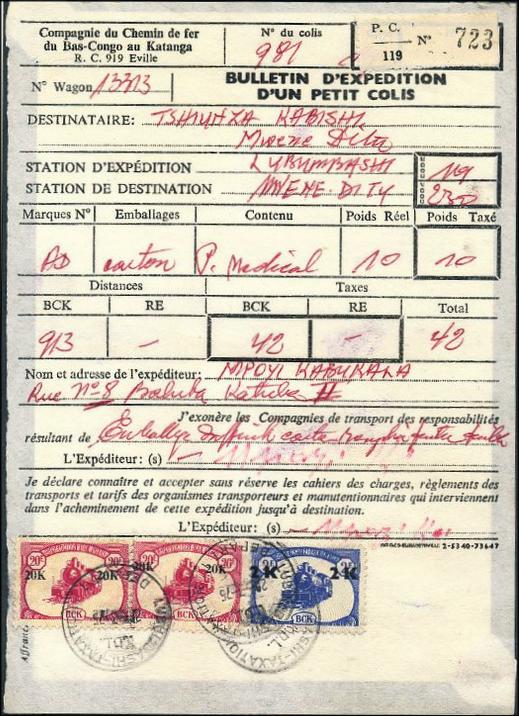 Compagnie du Chemin de fer
du Bas-Congo au Katanga
R. C. 919 Eville
N° du colis
981
P. C.
119
N°
723
N° Wagon 13313
BULLETIN D'EXPEDITION
D'UN PETIT COLIS
DESTINATAIRE: TSHIUNZA KABISHI
Mwene Dita
STATION D'EXPÉDITION LUBUMBASHI 119
STATION DE DESTINATION MWENE-DITY 230
Marques N° Emballages Contenu Poids Réel Poids Taxé
AD carton P. Medical 10 10
Distances Taxes
BCK RE BCK RE Total
913 - 42 - 42
Nom et adresse de l'expéditeur: MPOYI KABUKALA
Rue N°8 Baluba Katuba II
J'exonère les Compagnies de transport des responsabilités
résultant de Emballage
L'Expéditeur: (s)
Je déclare connaître et accepter sans réserve les cahiers des charges, règlements des
transports et tarifs des organismes transporteurs et manutentionnaires qui interviennent
dans l'acheminement de cette expédition jusqu'à destination.
L'Expéditeur: (s)
2-5340-73647
20K 20K 20K 2K 2-K
BCK BCK BCK
LUBUMBASHI-TAXATION
DEPART
K.D.L.
Affranc